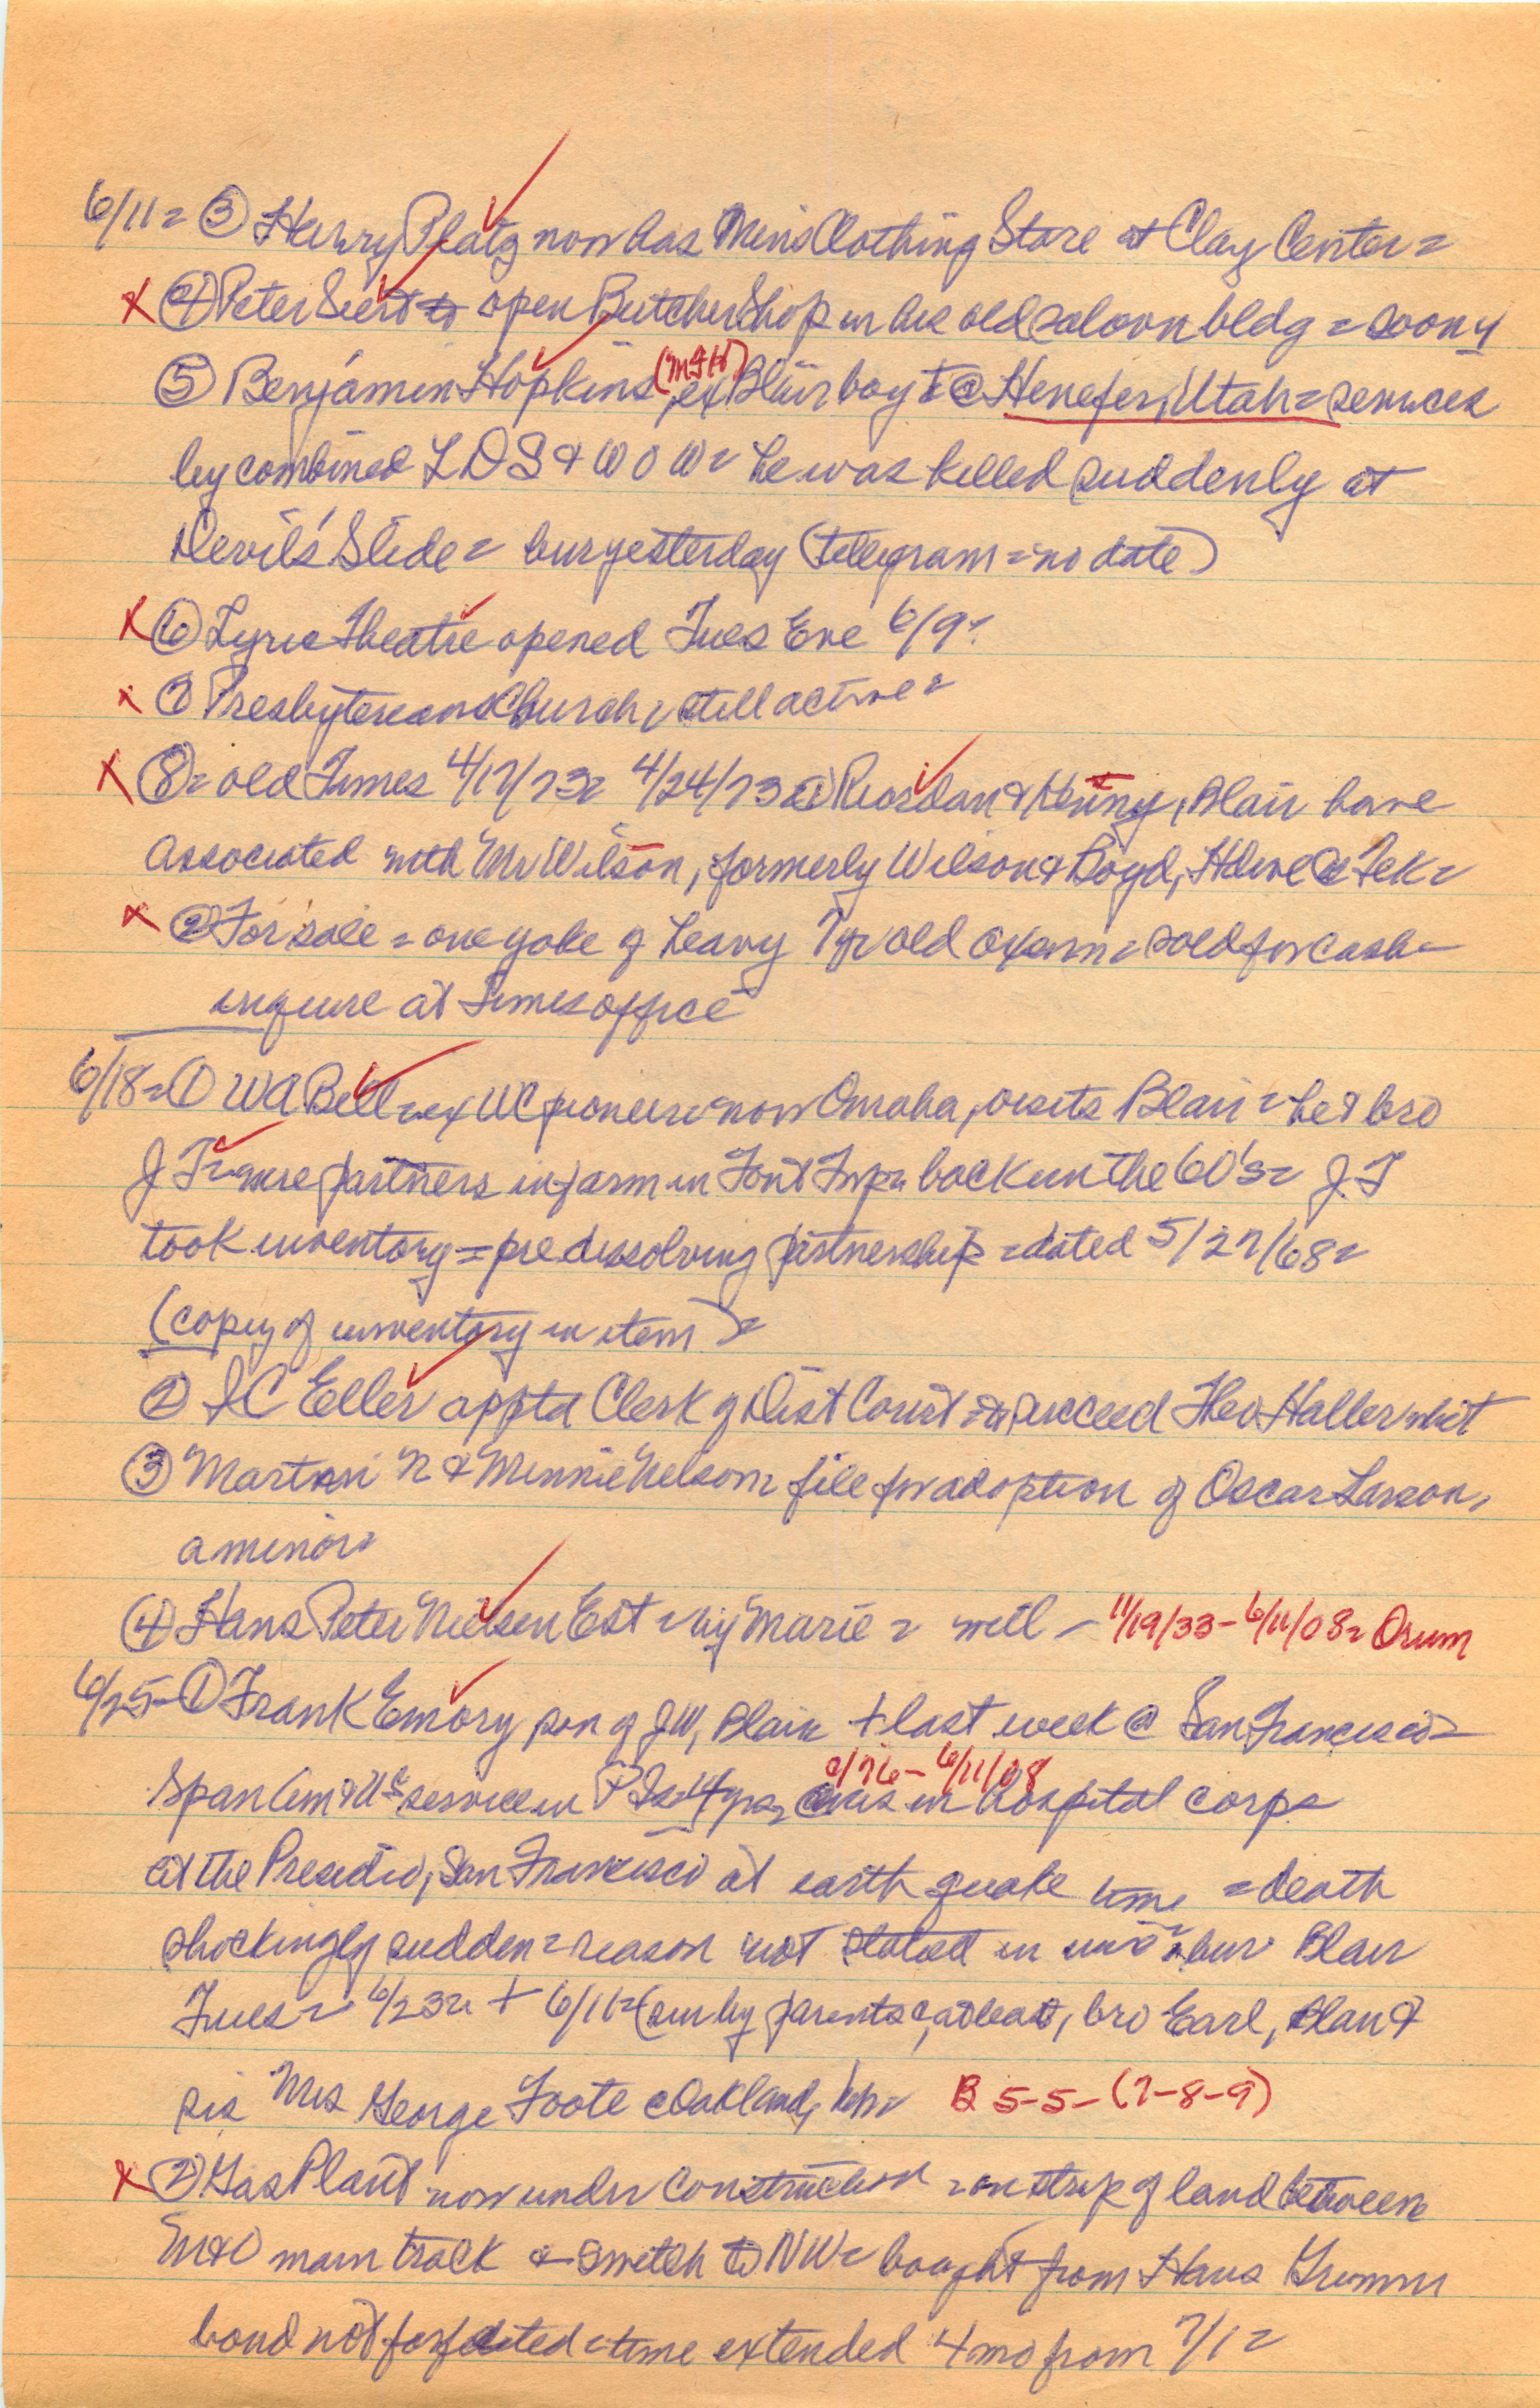 6/11= ③ Harry Platz now has Mens Clothing Store at Clay Center=
X ④ Peter Siert to open Butcher Shop in his old saloon bldg = soon
⑤ Benjamin Hopkins, (MFH) ex Blair boy † @ Henefer, Utah = services
by combined LDS & WOW= he was killed suddenly at
Devil's Slide = bur yesterday (telegram = no date)
X ⑥ Lyric Theatre opened Tues Eve 6/9=
X ⑦ Presbyterian Church = still active =
X ⑧= old Times 4/17/73= 4/24/73= ① Riordan & Henny, Blair have
associated with Mr Wilson, formerly Wilson & Boyd, Hdwe @ Tek=
X ② For sale = one yoke of heavy 7 yr old oxen = sold for cash =
inquire at Times office
6/18= ① WA Bell = ex WC pioneer = now Omaha, visits Blair = he & bro
J T = were partners in farm in Font Twp = back in the 60's = J.T
took inventory = pre dissolving partnership = dated 5/27/68=
(copy of inventory in item)=
② IC Eller apptd Clerk of Dist Court = to succeed Theo Haller
③ Martin N & Minnie Nelson = file for adoption of Oscar Larson,
a minor=
④ Hans Peter Nielsen Est = by Marie = will - 11/19/33 - 6/11/08= Orum
6/25= ① Frank Emory son of JW, Blair † last week @ San Francisco=
2/76 - 6/11/08
Span Am service in P Is = 4 yrs = was in hospital corps
at the Presidio, San Francisco at earth quake time = death
shockingly sudden = reason not stated in bur Blair
Tues = 6/23= † 6/11= (sur by parents, bro Earl, Blair &
sis Mrs George Foote @ Oakland, B 5-5-(7-8-9)
X ② Gas Plant now under construction = on strip of land between
M&O main track & switch to NW= bought from Hans Grimm
bond not forfeited = time extended 4 mo from 7/1=